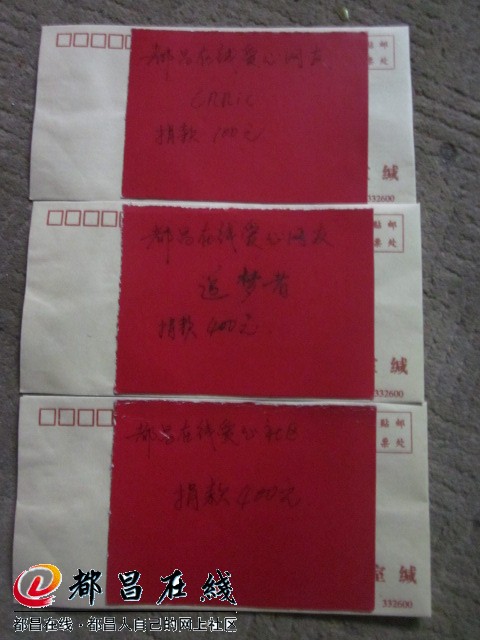 都昌在线爱心网友
CRRic
捐款 100元
贴邮
票处
室缄
332600
都昌在线爱心网友
追梦者
捐款 400元
贴邮
票处
室缄
332600
都昌在线爱心社区
捐款 400元
贴邮
票处
室缄
332600
都昌在線
都昌在线·都昌人自己的网上社区